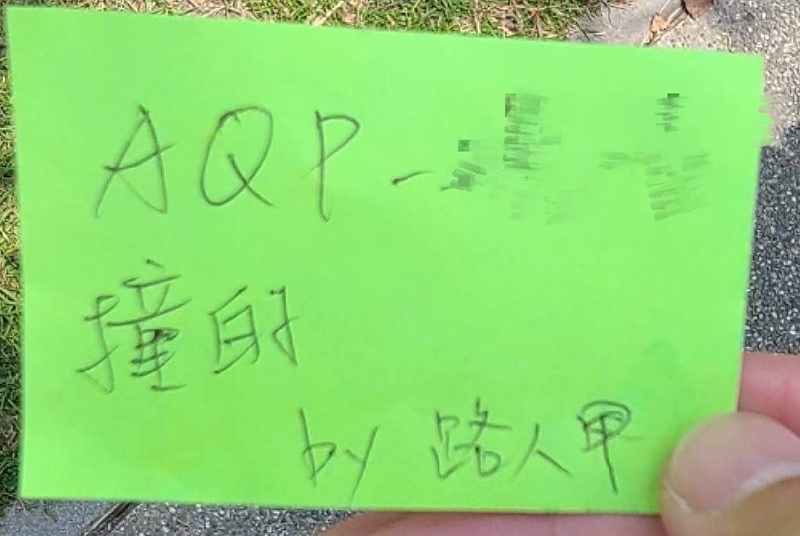 AQP-
撞的
by 路人甲